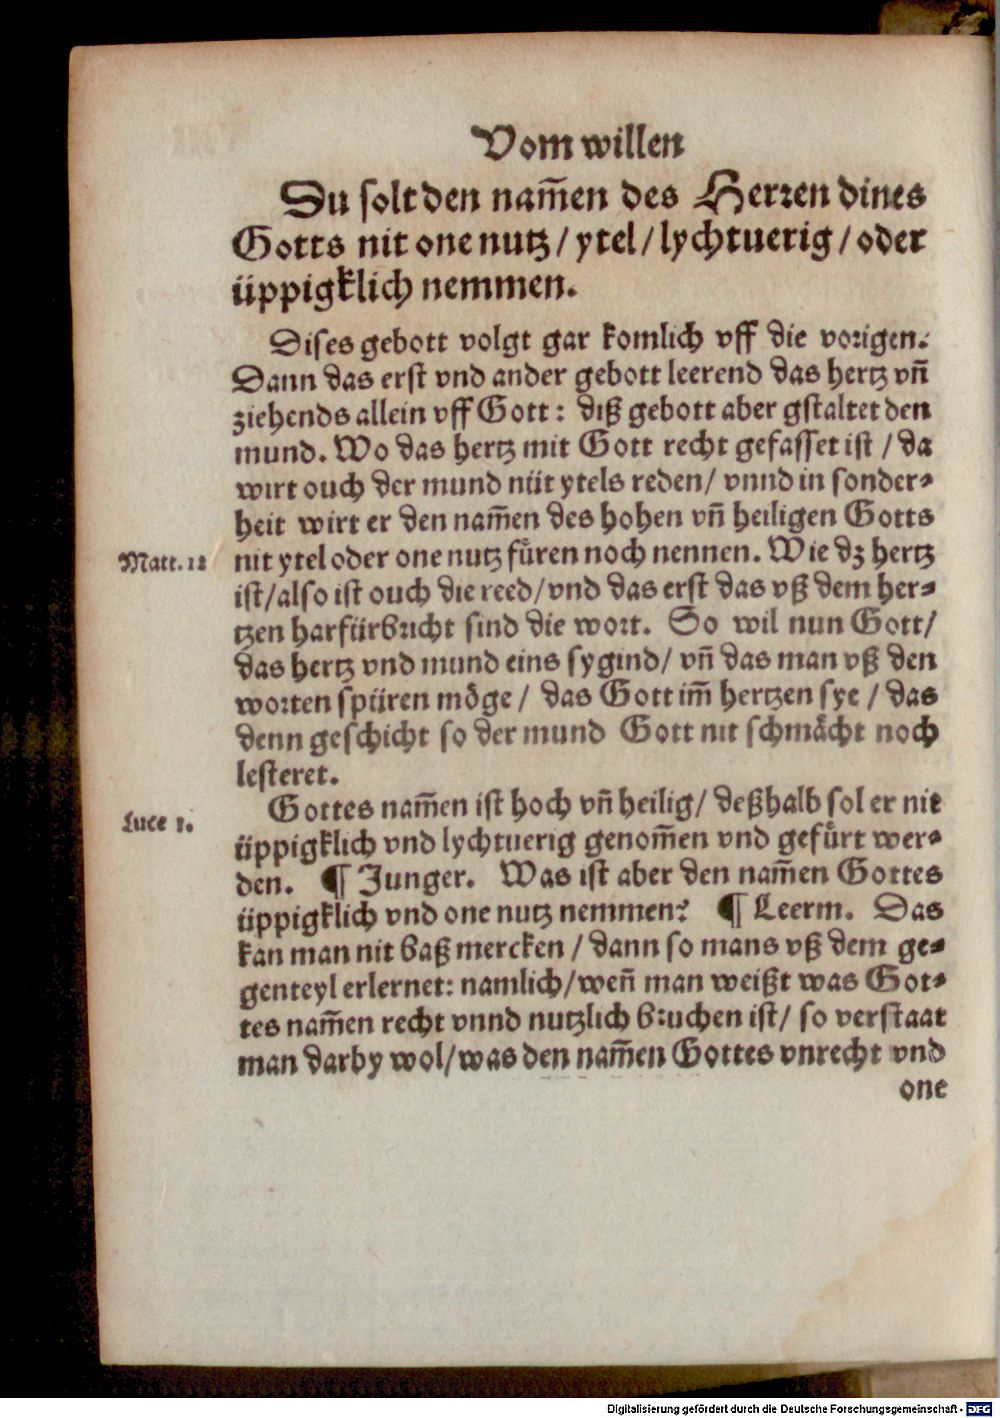 Vom willen
Du solt den nam̅en des Herꝛen dines
Gotts nit one nutz / ytel / lychtuerig / oder
üppigklich nemmen.
Dises gebott volgt gar komlich vff die voꝛigen.
Dann das erst vnd ander gebott leerend das hertz vn̅
ziehends allein vff Gott: diß gebott aber gstaltet den
mund. Wo das hertz mit Gott recht gefasset ist / da
wirt ouch der mund nüt ytels reden / vnnd in sonder⸗
heit wirt er den nam̅en des hohen vn̅ heiligen Gotts
Matt. 12
nit ytel oder one nutz fuͤren noch nennen. Wie dz hertz
ist / also ist ouch die reed / vnd das erst das vß dem her⸗
tzen harfürbꝛicht sind die woꝛt. So wil nun Gott /
das hertz vnd mund eins sygind / vn̅ das man vß den
woꝛten spüren moͤge / das Gott im̅ hertzen sye / das
denn geschicht so der mund Gott nit schmaͤcht noch
lesteret.
Gottes nam̅en ist hoch vn̅ heilig / deßhalb sol er nit
Luce 1.
üppigklich vnd lychtuerig genom̅en vnd gefuͤrt wer⸗
den. ¶ Junger. Was ist aber den nam̅en Gottes
üppigklich vnd one nutz nemmen? ¶ Leerm. Das
kan man nit baß mercken / dann so mans vß dem ge⸗
genteyl erlernet: namlich / wen̅ man weißt was Got⸗
tes nam̅en recht vnnd nutzlich bꝛuchen ist / so verstaat
man darby wol / was den nam̅en Gottes vnrecht vnd
one
Digitalisierung gefördert durch die Deutsche Forschungsgemeinschaft - DFG